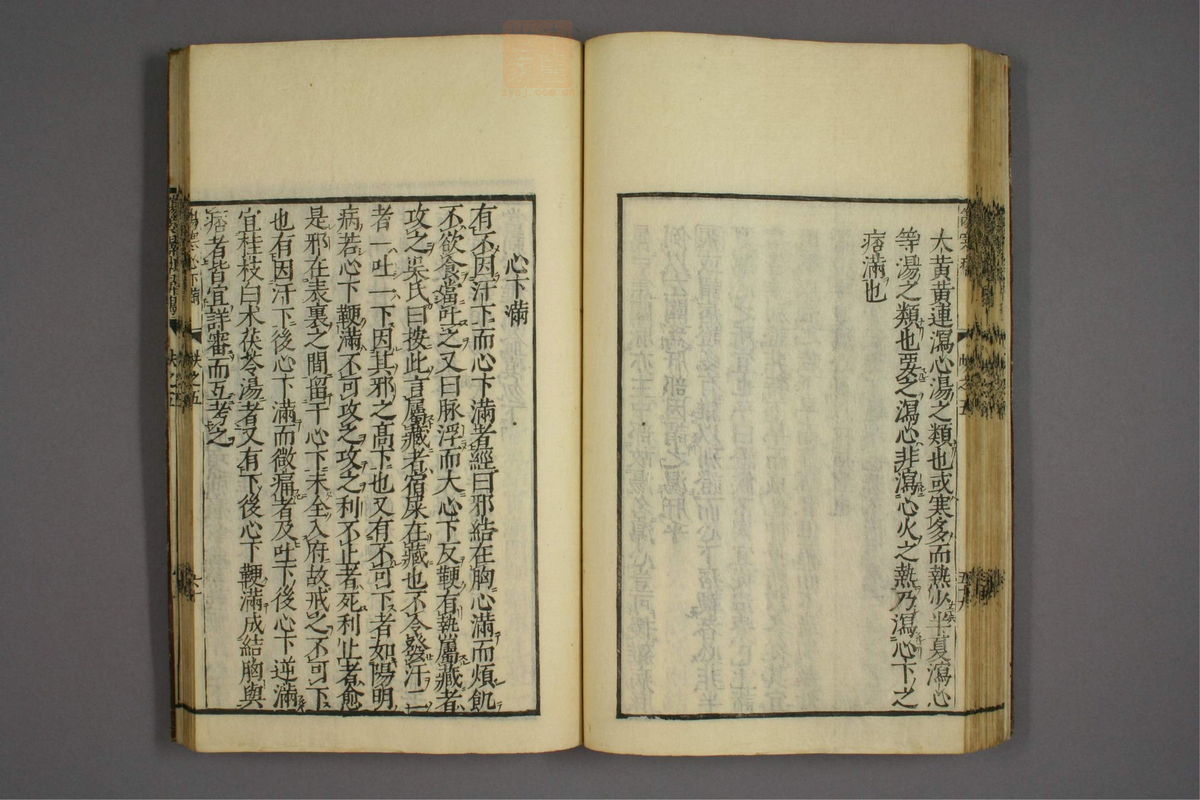 大黃黃連瀉心湯之類也或寒多而熱少半夏瀉心
等湯之類也要之瀉心非瀉心火之熱乃瀉心下之
痞滿也
心下滿
有不因汗下而心下滿者經曰邪結在胸心滿而煩飢
不欲食當吐之又曰脉浮而大心下反鞕有熱屬藏者
攻之吳氏曰按此言屬藏者宿屎在藏也不令發汗二
者一吐一下因其邪之高下也又有不可下者如陽明
病若心下鞕滿不可攻之攻之利不止者死利止者愈
是邪在表裏之間留于心下未全入府故戒之不可下
也有因汗下後心下滿而微痛者及吐下後心下逆滿
宜桂枝白朮茯苓湯者又有下後心下鞕滿成結胸與
痞者皆宜詳審而互考之